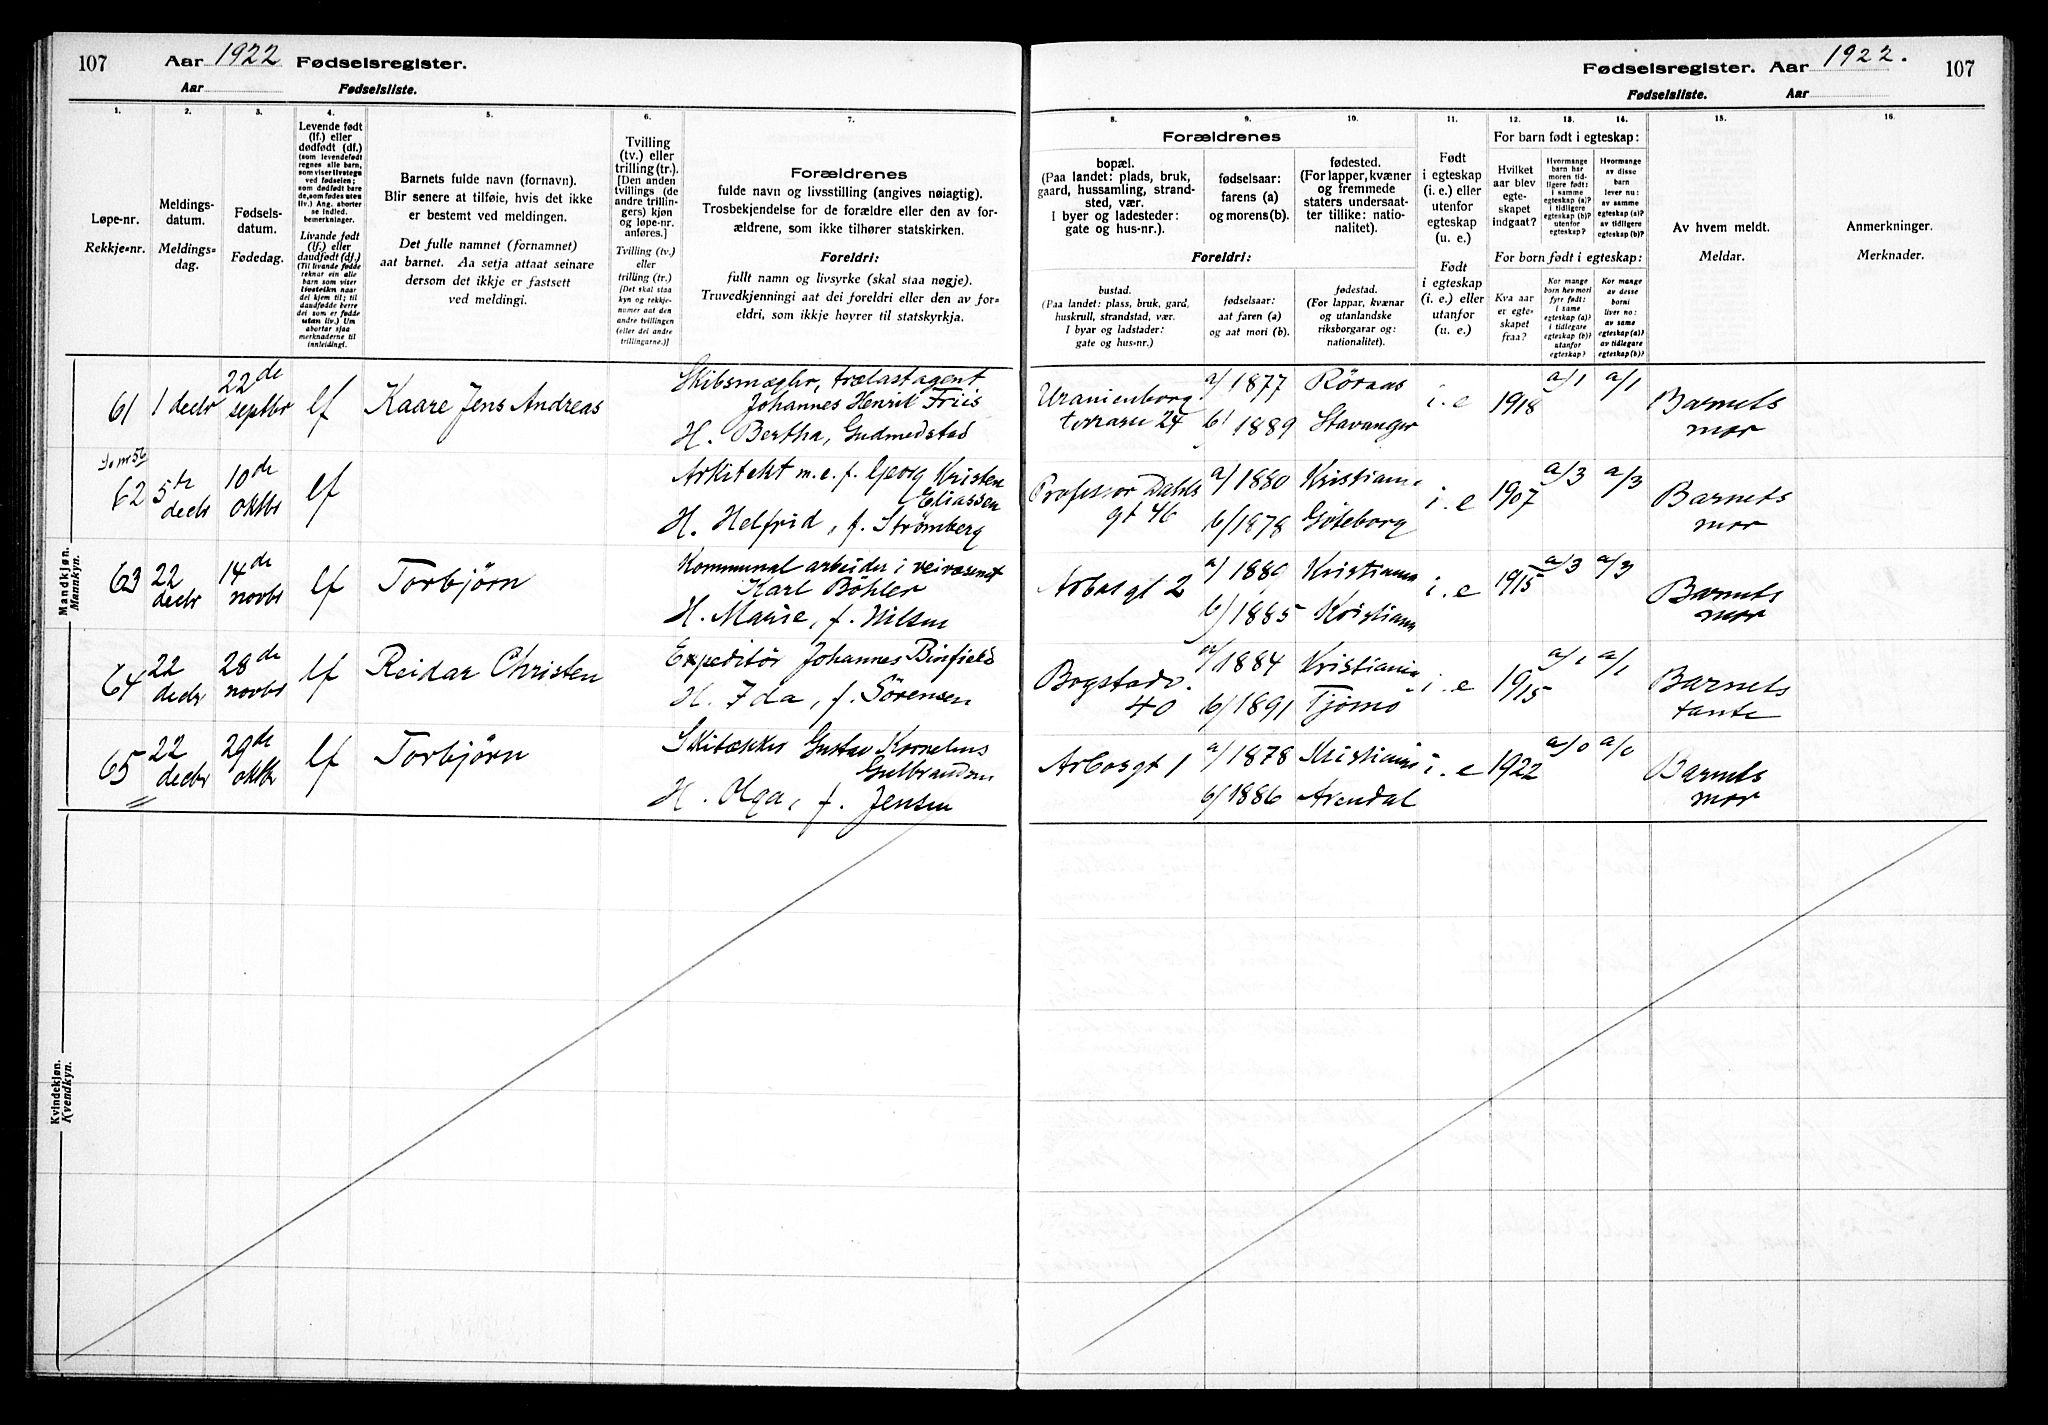 107 Aar 1922 Fødselsregister.
Aar Fødselsliste.
1. 2. 3. 4. 5. 6. 7.
Løpe-nr.
Rekkje-nr.
Meldings-
datum.
Meldings-
dag.
Fødsels-
datum.
Fødedag.
Levende født
(lf.) eller
dødfødt (df.)
(som levendefødt
regnes alle barn,
som viser livstegn
ved fødselen;
som dødfødt bare
de, som fødes uten
liv.) Ang. aborter
se indled.
bemerkninger.
Livande født
(lf.) eller
daudfødt (df.)
(Til livande fødde
reknar ein alle
barn som viser
livsteikn naar
dei kjem til; til
daudfødde berre
dei som er fødde
utan liv.) Um
abortar sjaa
merknaderne til
innleidingi.
Barnets fulde navn (fornavn).
Blir senere at tilføie, hvis det ikke
er bestemt ved meldingen.
Det fulle namnet (fornamnet)
aat barnet. Aa setja attaat seinare
dersom det ikkje er fastsett
ved meldingi.
Tvilling
(tv.) eller
trilling (tr.)
[Den anden
tvillings (de
andre trillin-
gers) kjøn
og løpe-nr.
anføres.]
Tvilling (tv.)
eller
trilling (tr.)
[Det skal staa
kyn og rekkje-
numer aat den
andre tvillingen
(eller dei andre
trillingarne.)]
Forældrenes
fulde navn og livsstilling (angives nøiagtig).
Trosbekjendelse for de forældre eller den av for-
ældrene, som ikke tilhører statskirken.
Foreldri:
fullt namn og livsyrke (skal staa nøgje).
Truvedkjenningi aat dei foreldri eller den av for-
eldri, som ikkje høyrer til statskyrkja.
Mandkjøn.
Mannkyn.
61 1 decbr 22de septbr lf Kaare Jens Andreas
Skibsmægler, trælastagent
Johannes Henrik Friis
H. Bertha, Gudmedstad
Se nr 56
62 5te decbr 10de oktbr lf
Arkitekt m.e.f. Georg Kristen
Eliassen
H. Helfrid, f. Strømberg
63 22 decbr 14de novbr lf Torbjørn
Kommunal arbeider i veivæsenet
Karl Böhler
H. Marie, f. Nilsen
64 22 decbr 28de novbr lf Reidar Christen
Expeditør Johannes Binfield
H. Ida, f. Sörensen
65 22 decbr 29de oktbr lf Torbjørn
Gustav Kornelius
Gulbrandsen
H. Olga, f. Jensen
Kvindekjøn.
Kvendkyn.
Fødselsregister. Aar 1922. 107
Fødselsliste. Aar
8. 9. 10. 11. 12. 13. 14. 15. 16.
Forældrenes
bopæl.
(Paa landet: plads, bruk,
gaard, hussamling, strand-
sted, vær.
I byer og ladesteder:
gate og hus-nr.).
fødselsaar:
farens (a)
og morens (b).
fødested.
(For lapper, kvæner
og fremmede
staters undersaat-
ter tillike: natio-
nalitet).
Foreldri:
bustad.
(Paa landet: plass, bruk, gard,
huskrull, strandstad, vær.
I byar og ladstader:
gate og hus-nr.)
fødselsaar:
aat faren (a)
og aat mori (b).
fødestad.
(For lappar, kvænar
og utanlandske
riksborgarar og:
nationalitet).
Født
i egteskap
(i. e.) eller
utenfor
egteskap
(u. e.)
Født
i egteskap
(i. e.) eller
utanfor
(u. e.)
For barn født i egteskap:
Hvilket
aar blev
egte-
skapet
indgaat?
Hvormange
barn har
moren tid-
ligere født:
i samme
egteskap (a)?
i tidligere
egteskap (b)?
utenfor
egteskap?
Hvormange
av disse
barn
lever nu:
av samme
egteskap (a)?
av tidligere
egteskap (b)?
For born født i egteskap:
Kva aar
er egte-
skapet
fraa?
Kor mange
born hev mori
fyrr født:
i same
egteskap (a)?
i tidlegare
egteskap (b)?
utanfor
egteskap?
Kor mange
av desse
borni
liver no:
av same
egteskap (a)?
av tidlegare
egteskap (b)?
Av hvem meldt.
Meldar.
Anmerkninger.
Merknader.
Uranienborg
terrasse 24
a/ 1877 Röraas
b/ 1889 Stavanger
i.e 1918 a/1 a/1 Barnets
mor
Professor Dahls
gt 46
a/ 1880 Kristiania
b/ 1878 Göteborg
i.e 1907 a/3 a/3 Barnets
mor
Arbosgt 2
a/ 1880 Kristiania
b/ 1885 Kristiania
i.e 1915 a/3 a/3 Barnets
mor
Bogstadv.
40
a/ 1884 Kristiania
b/ 1891 Tjömö
i.e 1915 a/1 a/1 Barnets
tante
Arbosgt 1
a/ 1878 Kristiania
b/ 1886 Arendal
i.e 1922 a/0 a/0 Barnets
mor